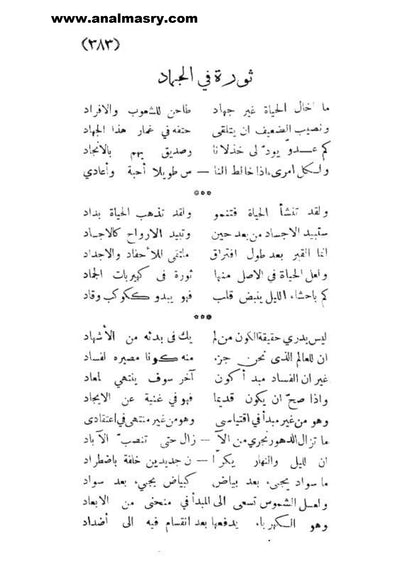 www.analmasry.com
(٣٨٣)
ثورة في الجماد
ما اخال الحياة غير جهاد طاحن للشعوب والافراد
ونصيب الضعيف ان يتلقى حتفه في غمار هذا الجهاد
كم عدوّ يودّ لى خذلانا وصديق يهم بالانجاد
ولكل امرىء اذا خالط النا — س طويلا أحبة وأعادي
***
ولقد تنشأ الحياة فتنمو ولقد تذهب الحياة بداد
ستبيد الاجساد من بعد حين وتبيد الارواح كالاجساد
انما القبر بعد طول افتراق ملتقى للأحفاد والاجداد
ولعل الحياة في الاصل منها ثورة في كهيربات الجماد
كم باحشاء الليل ينبض قلب فهو يبدو ككوكب وقاد
***
ليس يدري حقيقة الكون من لم يك في بدئه من الأشهاد
ان للعالم الذى نحن جزء منه كونا مصيره لفساد
غير ان الفساد مبدأ كون آخر سوف ينتهي لمعاد
واذا صحّ ان يكون قديما فهو في غنية عن الايجاد
وهو من غير مبدأ في اقتياسى وهو من غير منتهى في اعتقادى
ما تزال الدهور تجري من الآ — زال حتى تنصبّ في الآباد
ان لليل والنهار يكرّا — ن جديدين خلفة باضطراد
ما سواد يجىء بعد بياض كبياض يجىء بعد سواد
ولعل الشموس تسعى الى المبدأ في منحنى من الابعاد
وهو الكهرباء يدفعها بعد انقسام فيه الى أضداد